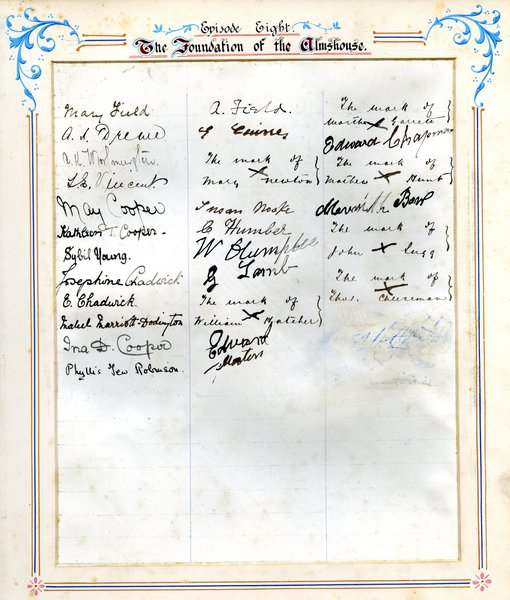 Episode Eight.
The Foundation of the Almshouse.
Mary Field
A. S. Drewe
A. U. Washington
S. E. Vincent
May Cooper
Kathleen T. Cooper.
Sybil Young.
Josephine Chadwick
E. Chadwick.
Mabel Marriott-Dodington
Ina D. Cooper
Phyllis Tew Robinson.
A. Field.
G Gaines
The mark of
Mary X Newton
Susan Noake
C Humber
W Plumptre
G Lamb
The mark of
William X Hatcher
Edward
Masters
The mark of
Martha X Garrett
Edward Chapman
The mark of
Mathew X Hunt
Meredith Bown
The mark of
John X Lugg
The mark of
Thos. X Cheeseman